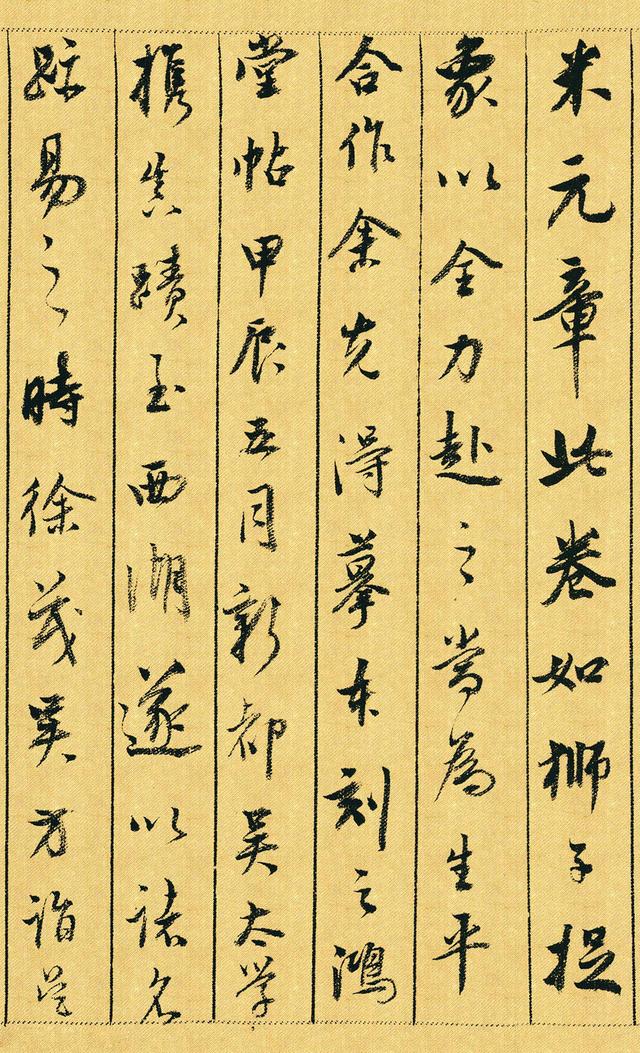 米元章此卷如狮子捉
象以全力赴之當為生平
合作余先得摹本刻之鴻
堂帖甲辰五月新都吴太学
携真蹟至西湖遂以诸名
跡易之時徐茂吴方诣吴